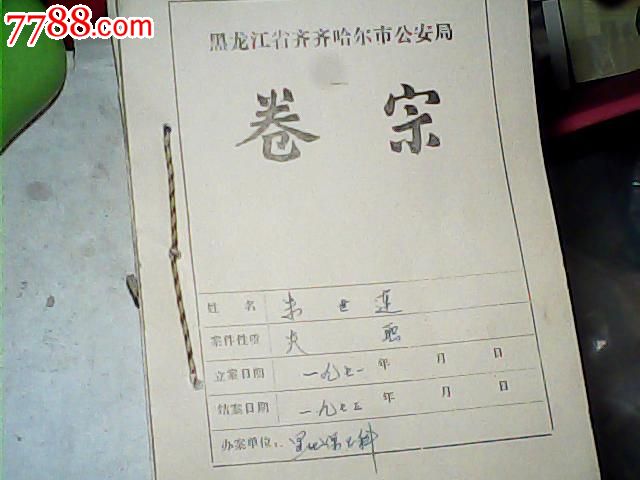 7788.com
黑龙江省齐齐哈尔市公安局
卷 宗
姓 名 朱世莲
案件性质
立案日期 一九七一年 月 日
结案日期 一九七三年 月 日
办案单位: